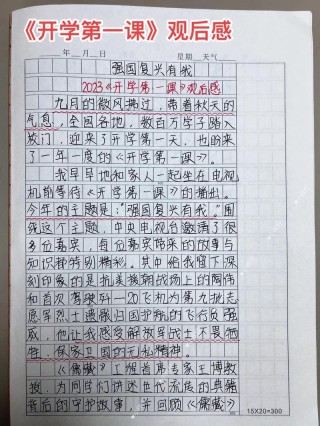 《开学第一课》观后感
年 月 日 星期 天气
强国复兴有我
2023《开学第一课》观后感
九月的微风拂过,带着秋天的
气息,全国各地,数百万学子踏入
校门,迎来了开学第一天,也盼来
了一年一度的《开学第一课》。
我早早地和家人一起坐在电视
机前等待《开学第一课》的播出。
今年的主题是:"强国复兴有我"围
绕这个主题,中央电视台邀请了很
多位嘉宾,每位嘉宾带来的故事与
知识都特别精彩。其中给我留下深
刻印象的是抗美援朝战场上的陶伟
和首次驾驶歼—20飞机为第九批志
愿军烈士遗骸归国护航的飞行员强
威,他让我感受解放军战士不畏牺
牲,保家卫国的无私精神。
《儒藏》工程首席专家王博教
授,为同学们讲述世代流传的典籍
背后的守护故事,并回顾《儒藏》
15X20=300